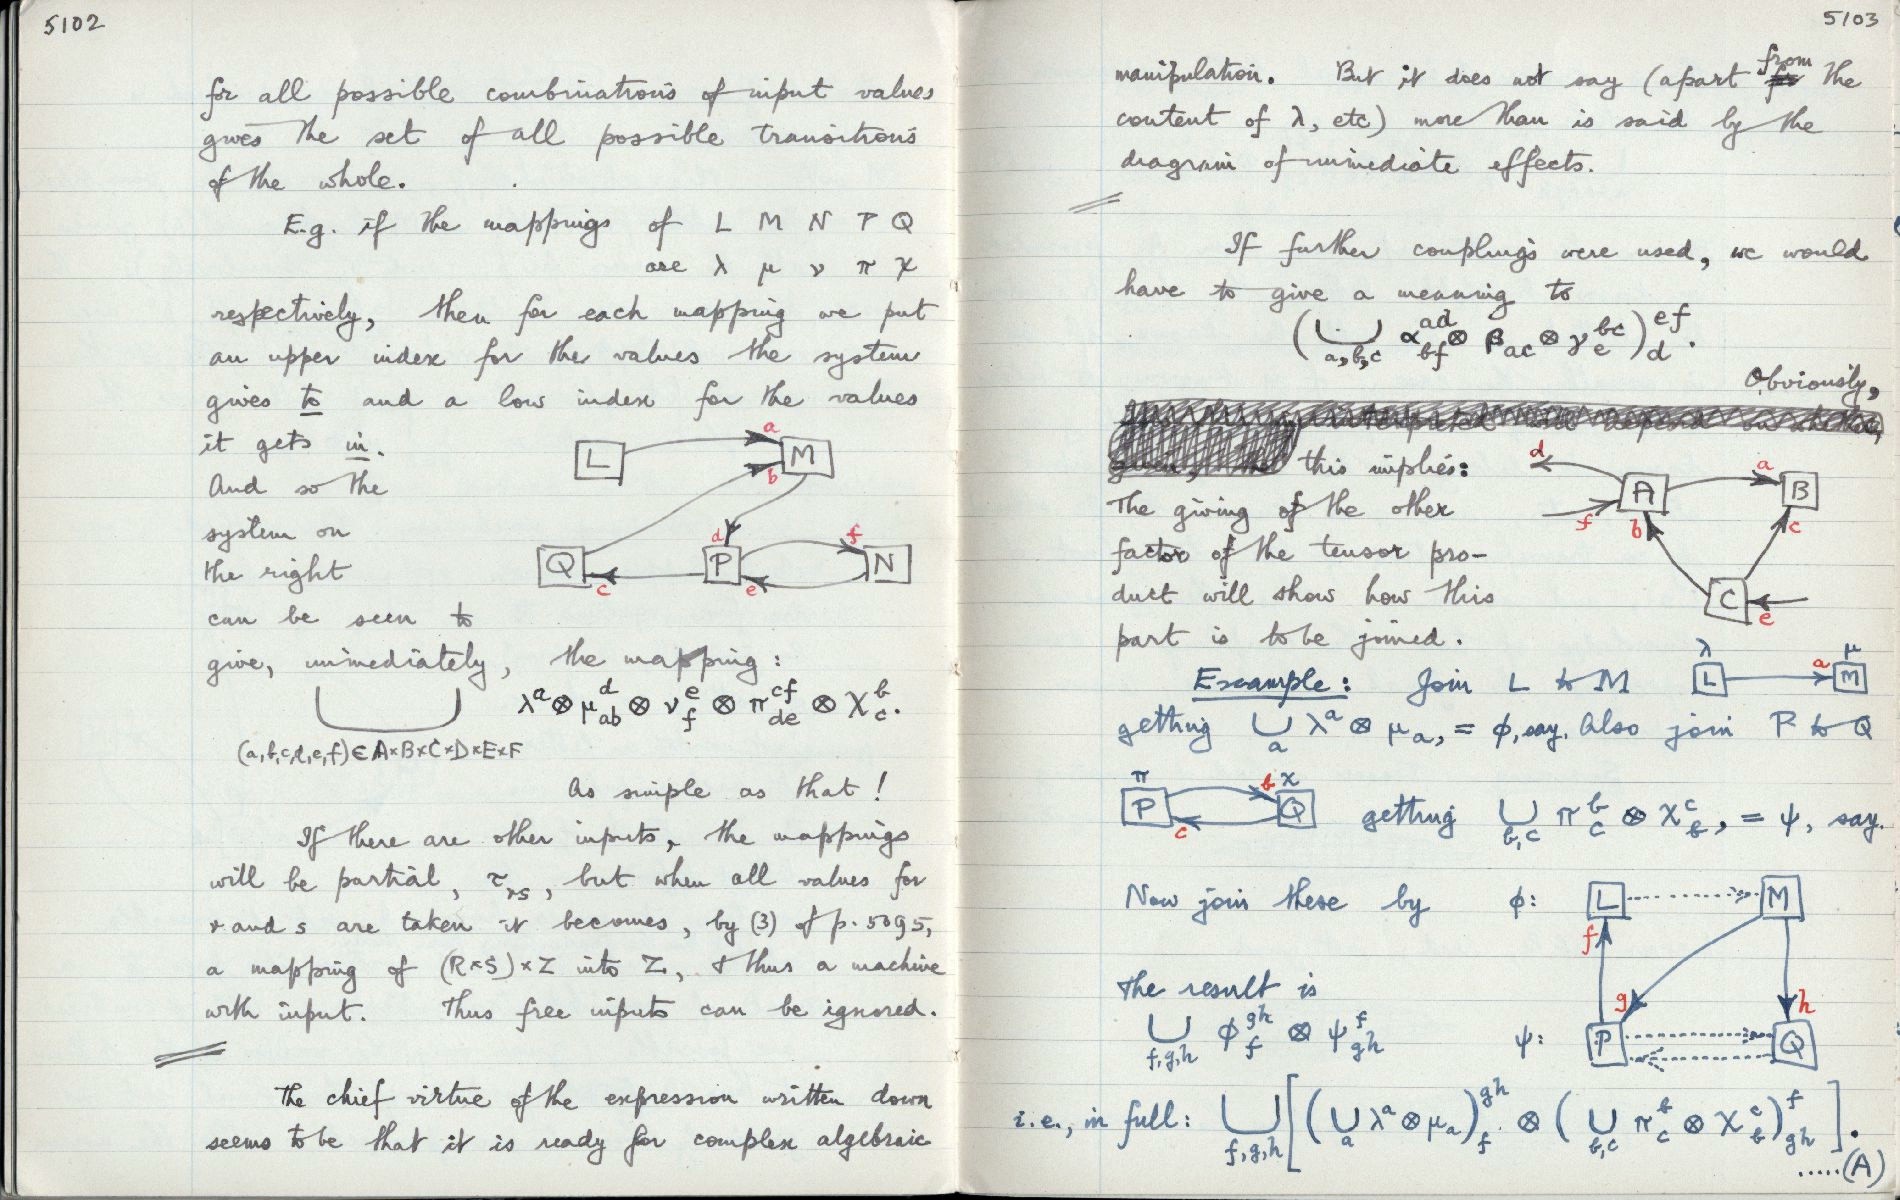 5102
for all possible combinations of input values
gives the set of all possible transitions
of the whole.
E.g. if the mappings of L M N P Q
are λ μ ν π χ
respectively, then for each mapping we put
an upper index for the values the system
gives to and a low index for the values
it gets in.
And so the
system on
the right
can be seen to
L a M b
d f
Q c P e N
give, immediately, the mapping:
⋃ λ^a ⊗ μ^d_ab ⊗ ν^e_f ⊗ π^cf_de ⊗ χ^b_c.
(a,b,c,d,e,f) ∈ A×B×C×D×E×F
As simple as that!
If there are other inputs, the mappings
will be partial, τ_rs, but when all values for
r and s are taken it becomes, by (3) of p. 5095,
a mapping of (R×S)×Z into Z, & thus a machine
with input. Thus free inputs can be ignored.
The chief virtue of the expression written down
seems to be that it is ready for complex algebraic
5103
manipulation. But it does not say (apart from the
content of λ, etc) more than is said by the
diagram of immediate effects.
If further couplings were used, we would
have to give a meaning to
(⋃_a,b,c α^ad_bf ⊗ β_ac ⊗ γ^bc_e)^ef_d.
Obviously,
this implies:
The giving of the other
factor of the tensor pro-
duct will show how this
part is to be joined.
d A a B
f b c
C e
Example: Join L to M
λ μ
L a M
getting ⋃_a λ^a ⊗ μ_a, = φ, say. Also join P to Q
π b χ
P c Q
getting ⋃_b,c π^b_c ⊗ χ^c_b, = ψ, say.
Now join these by φ: L M
f g h
The result is
⋃_f,g,h φ^gh_f ⊗ ψ^f_gh
ψ: P Q
i.e., in full: ⋃_f,g,h [(⋃_a λ^a ⊗ μ_a)^gh_f ⊗ (⋃_b,c π^b_c ⊗ χ^c_b)^f_gh].
.....(A)